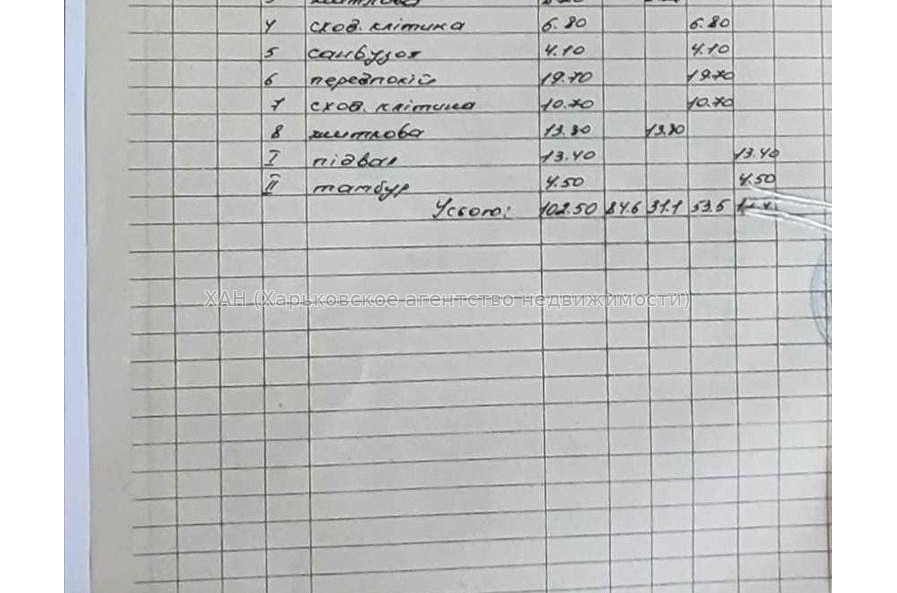 4 сход. клітина 6.80 6.80
5 санвузол 4.10 4.10
6 передпокій 19.70 19.70
7 сход. клітина 10.70 10.70
8 житлова 13.80 13.80
I підвал 13.40 13.40
II тамбур 4.50 4.50
Усього: 102.50 84.6 31.1 53.5
ХАН (Харьковское агентство недвижимости)